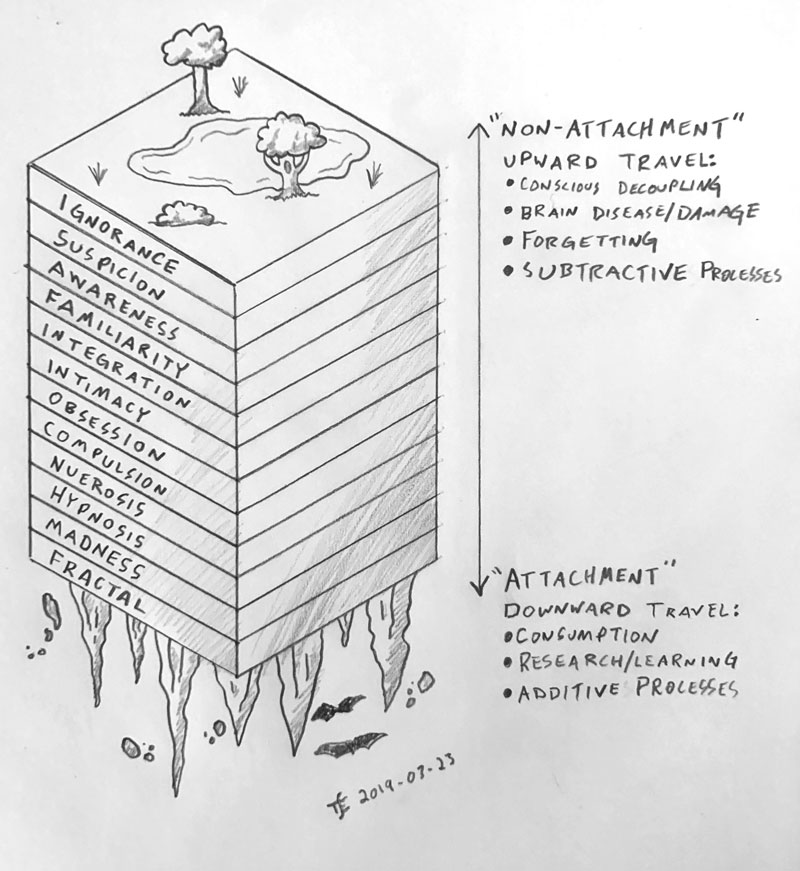 IGNORANCE
SUSPICION
AWARENESS
FAMILIARITY
INTEGRATION
INTIMACY
OBSESSION
COMPULSION
NUEROSIS
HYPNOSIS
MADNESS
FRACTAL
"NON-ATTACHMENT"
UPWARD TRAVEL:
• CONSCIOUS DECOUPLING
• BRAIN DISEASE/DAMAGE
• FORGETTING
• SUBTRACTIVE PROCESSES
"ATTACHMENT"
DOWNWARD TRAVEL:
• CONSUMPTION
• RESEARCH/LEARNING
• ADDITIVE PROCESSES
2019-03-23